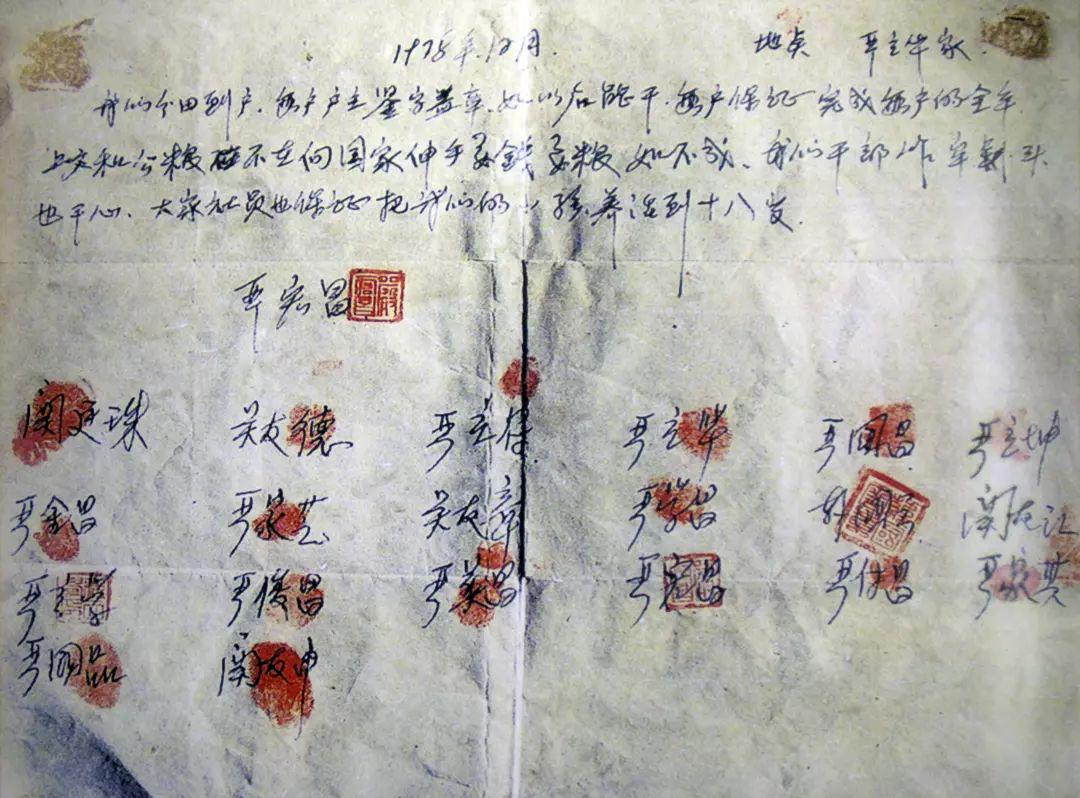 1978年.12月. 地点 严立华家.
我们分田到户.每户户主鉴字盖章.如以后能干.每户保证完成每户的全年
上交和公粮 不在向国家伸手要钱要粮 如不成.我们干部作牢
也干心.大家社员也保证把我们的小孩养活到十八岁.
严宏昌
関廷珠 关友德 严立符 严立华 严国昌 严立坤
严金昌 严家芝 关友章 严学昌 関友江
严立学 严俊昌 严美昌 严宏昌 严付昌 严家其
严国品 関友申